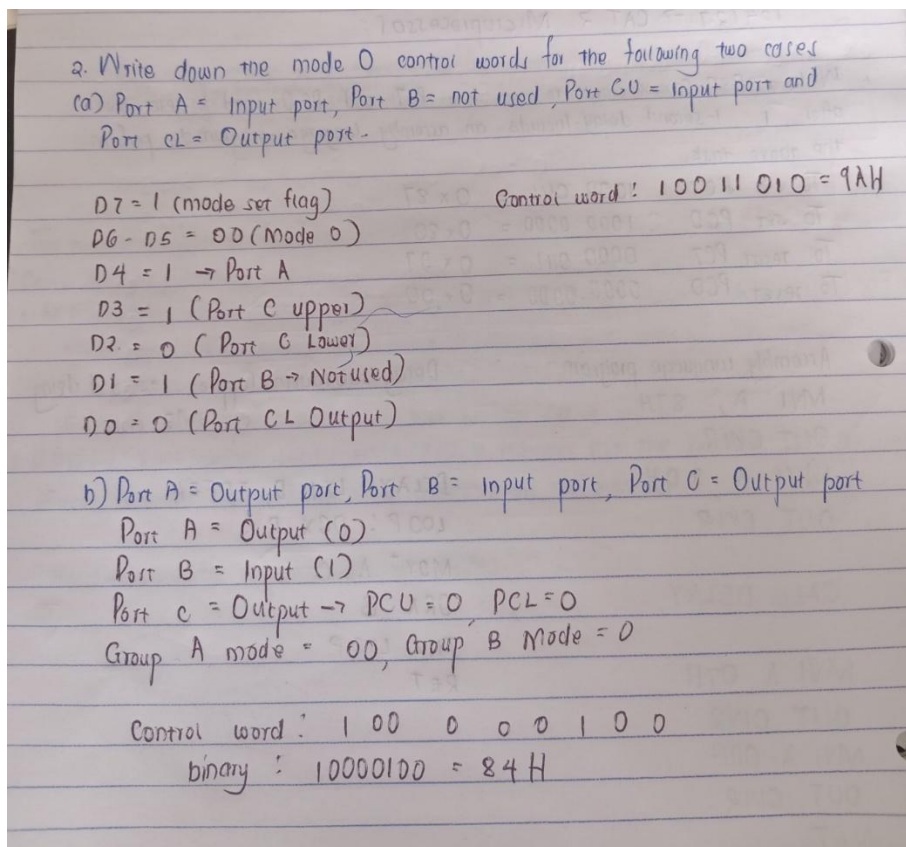 2. Write down the mode 0 control words for the following two cases
(a) Port A = Input port, Port B = not used, Port CU = Input port and
Port CL = Output port.
Control word : 10011010 = 9AH
D7 = 1 (mode set flag)
D6 - D5 = 00 (Mode 0)
D4 = 1 → Port A
D3 = 1 (Port C upper)
D2 = 0 ( Port C Lower)
D1 = 1 (Port B → Not used)
D0 = 0 (Port CL Output)
b) Port A = Output port, Port B = Input port, Port C = Output port
Port A = Output (0)
Port B = Input (1)
Port c = Output → PCU = 0 PCL = 0
Group A mode = 00, Group B Mode = 0
Control word : 1 00 0 0 0 1 0 0
binary : 10000100 = 84 H